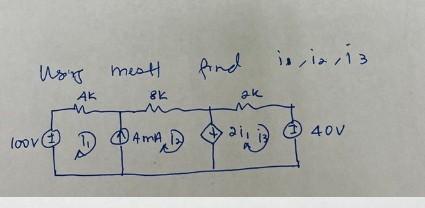 Using mesh find i1, i2, i3
4K 8K 2K
100V I1 4mA I2 2i1 i3 40V